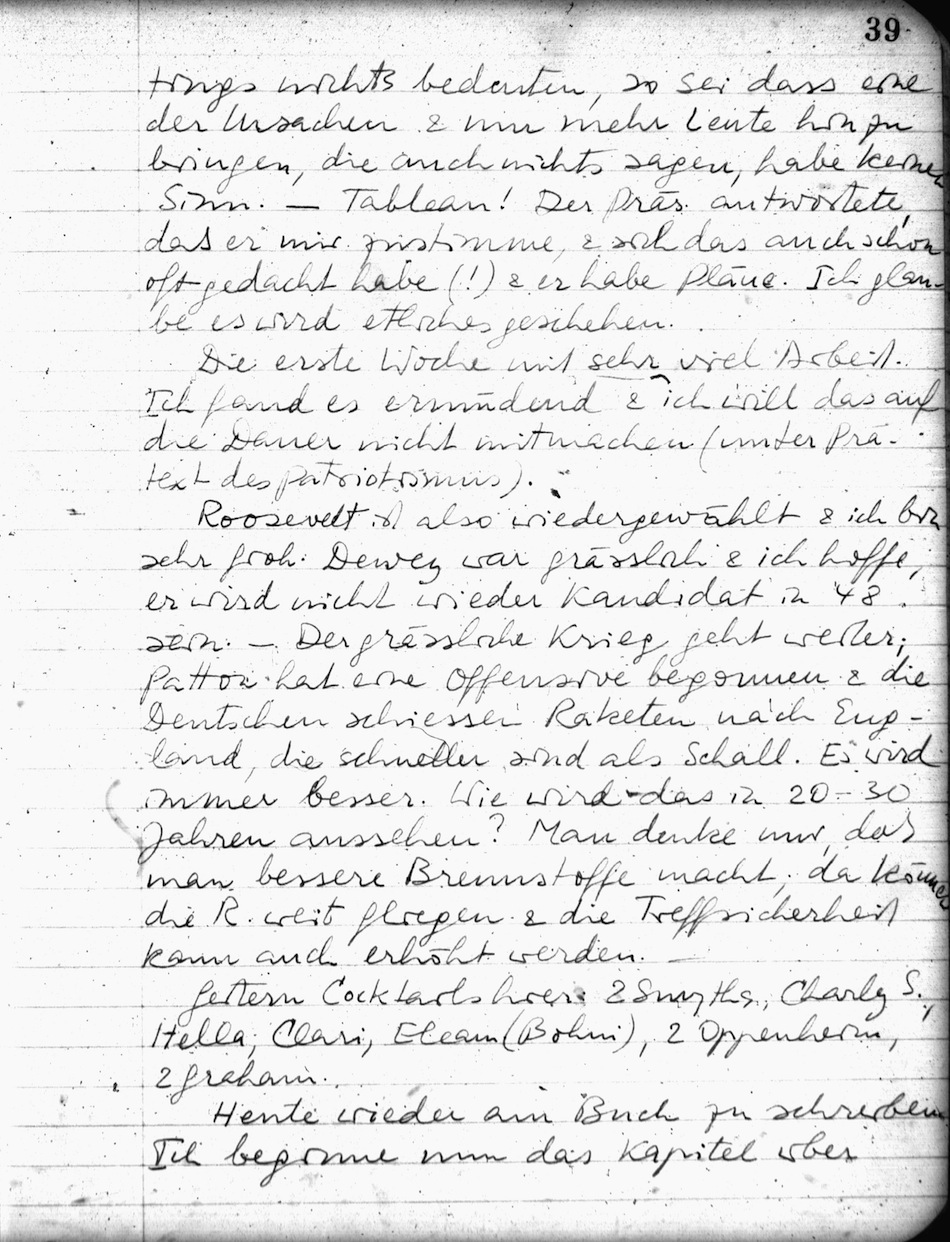 39
tings nichts bedeuten, so sei dass eine
der Ursachen & nun mehr Leute hinzu
bringen, die auch nichts sagen, habe keinen
Sinn. — Tableau! Der Präs. antwortete,
das er mir zustimme, & sich das auch schon
oft gedacht habe (!) & er habe Pläne. Ich glau-
be es wird etliches geschehen.
Die erste Woche mit sehr viel Arbeit.
Ich fand es ermüdend & ich will das auf
die Dauer nicht mitmachen (unter Prä-
text des Patriotismus).
Roosevelt ist also wiedergewählt & ich bin
sehr froh. Dewey war grässlich & ich hoffe,
er wird nicht wieder Kandidat in '48
sein. — Der grässliche Krieg geht weiter;
Patton hat eine Offensive begonnen & die
Deutschen schiessen Raketen nach Eng-
land, die schneller sind als Schall. Es wird
immer besser. Wie wird das in 20-30
Jahren aussehen? Man denke nur, das
man bessere Brennstoffe macht; da können
die R. weit fliegen & die Treffsicherheit
kann auch erhöht werden. —
Gestern Cocktails hier: 2 Smyths, Charly S.,
Hella, Clari, Eleam (Böhm), 2 Oppenheim,
2 Graham.
Heute wieder am Buch zu schreiben
Ich beginne nun das Kapitel über